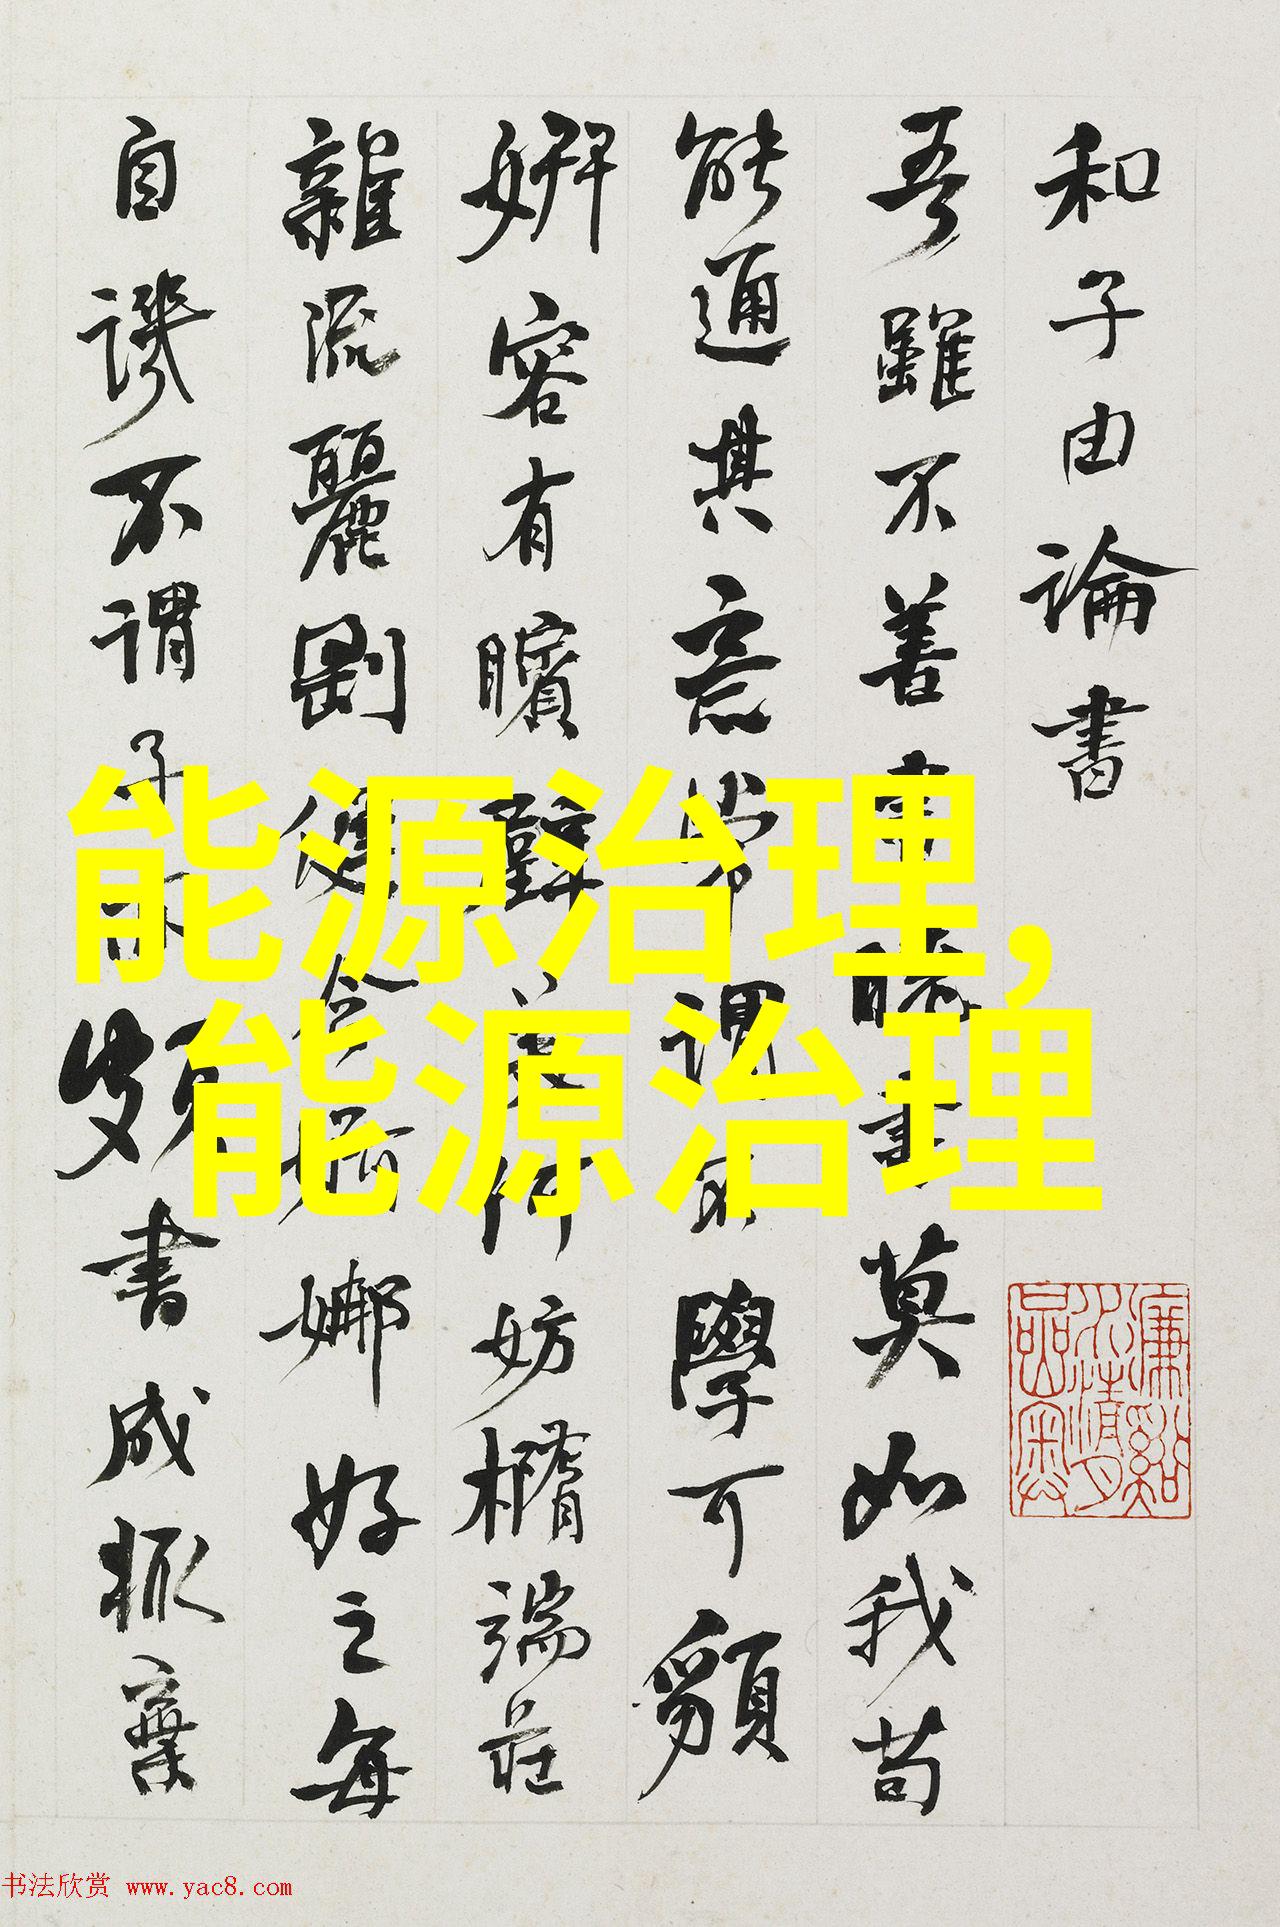 和子由論書
吾雖不善書曉書莫如我苟
能通其意常謂不學可䫉
妍容有矉璧美何妨橢端莊
雜流麗剛健含婀娜好之每
自譏不謂子亦頗書成輒棄
能源治理,
能源治理
书法欣赏 www.yac8.com